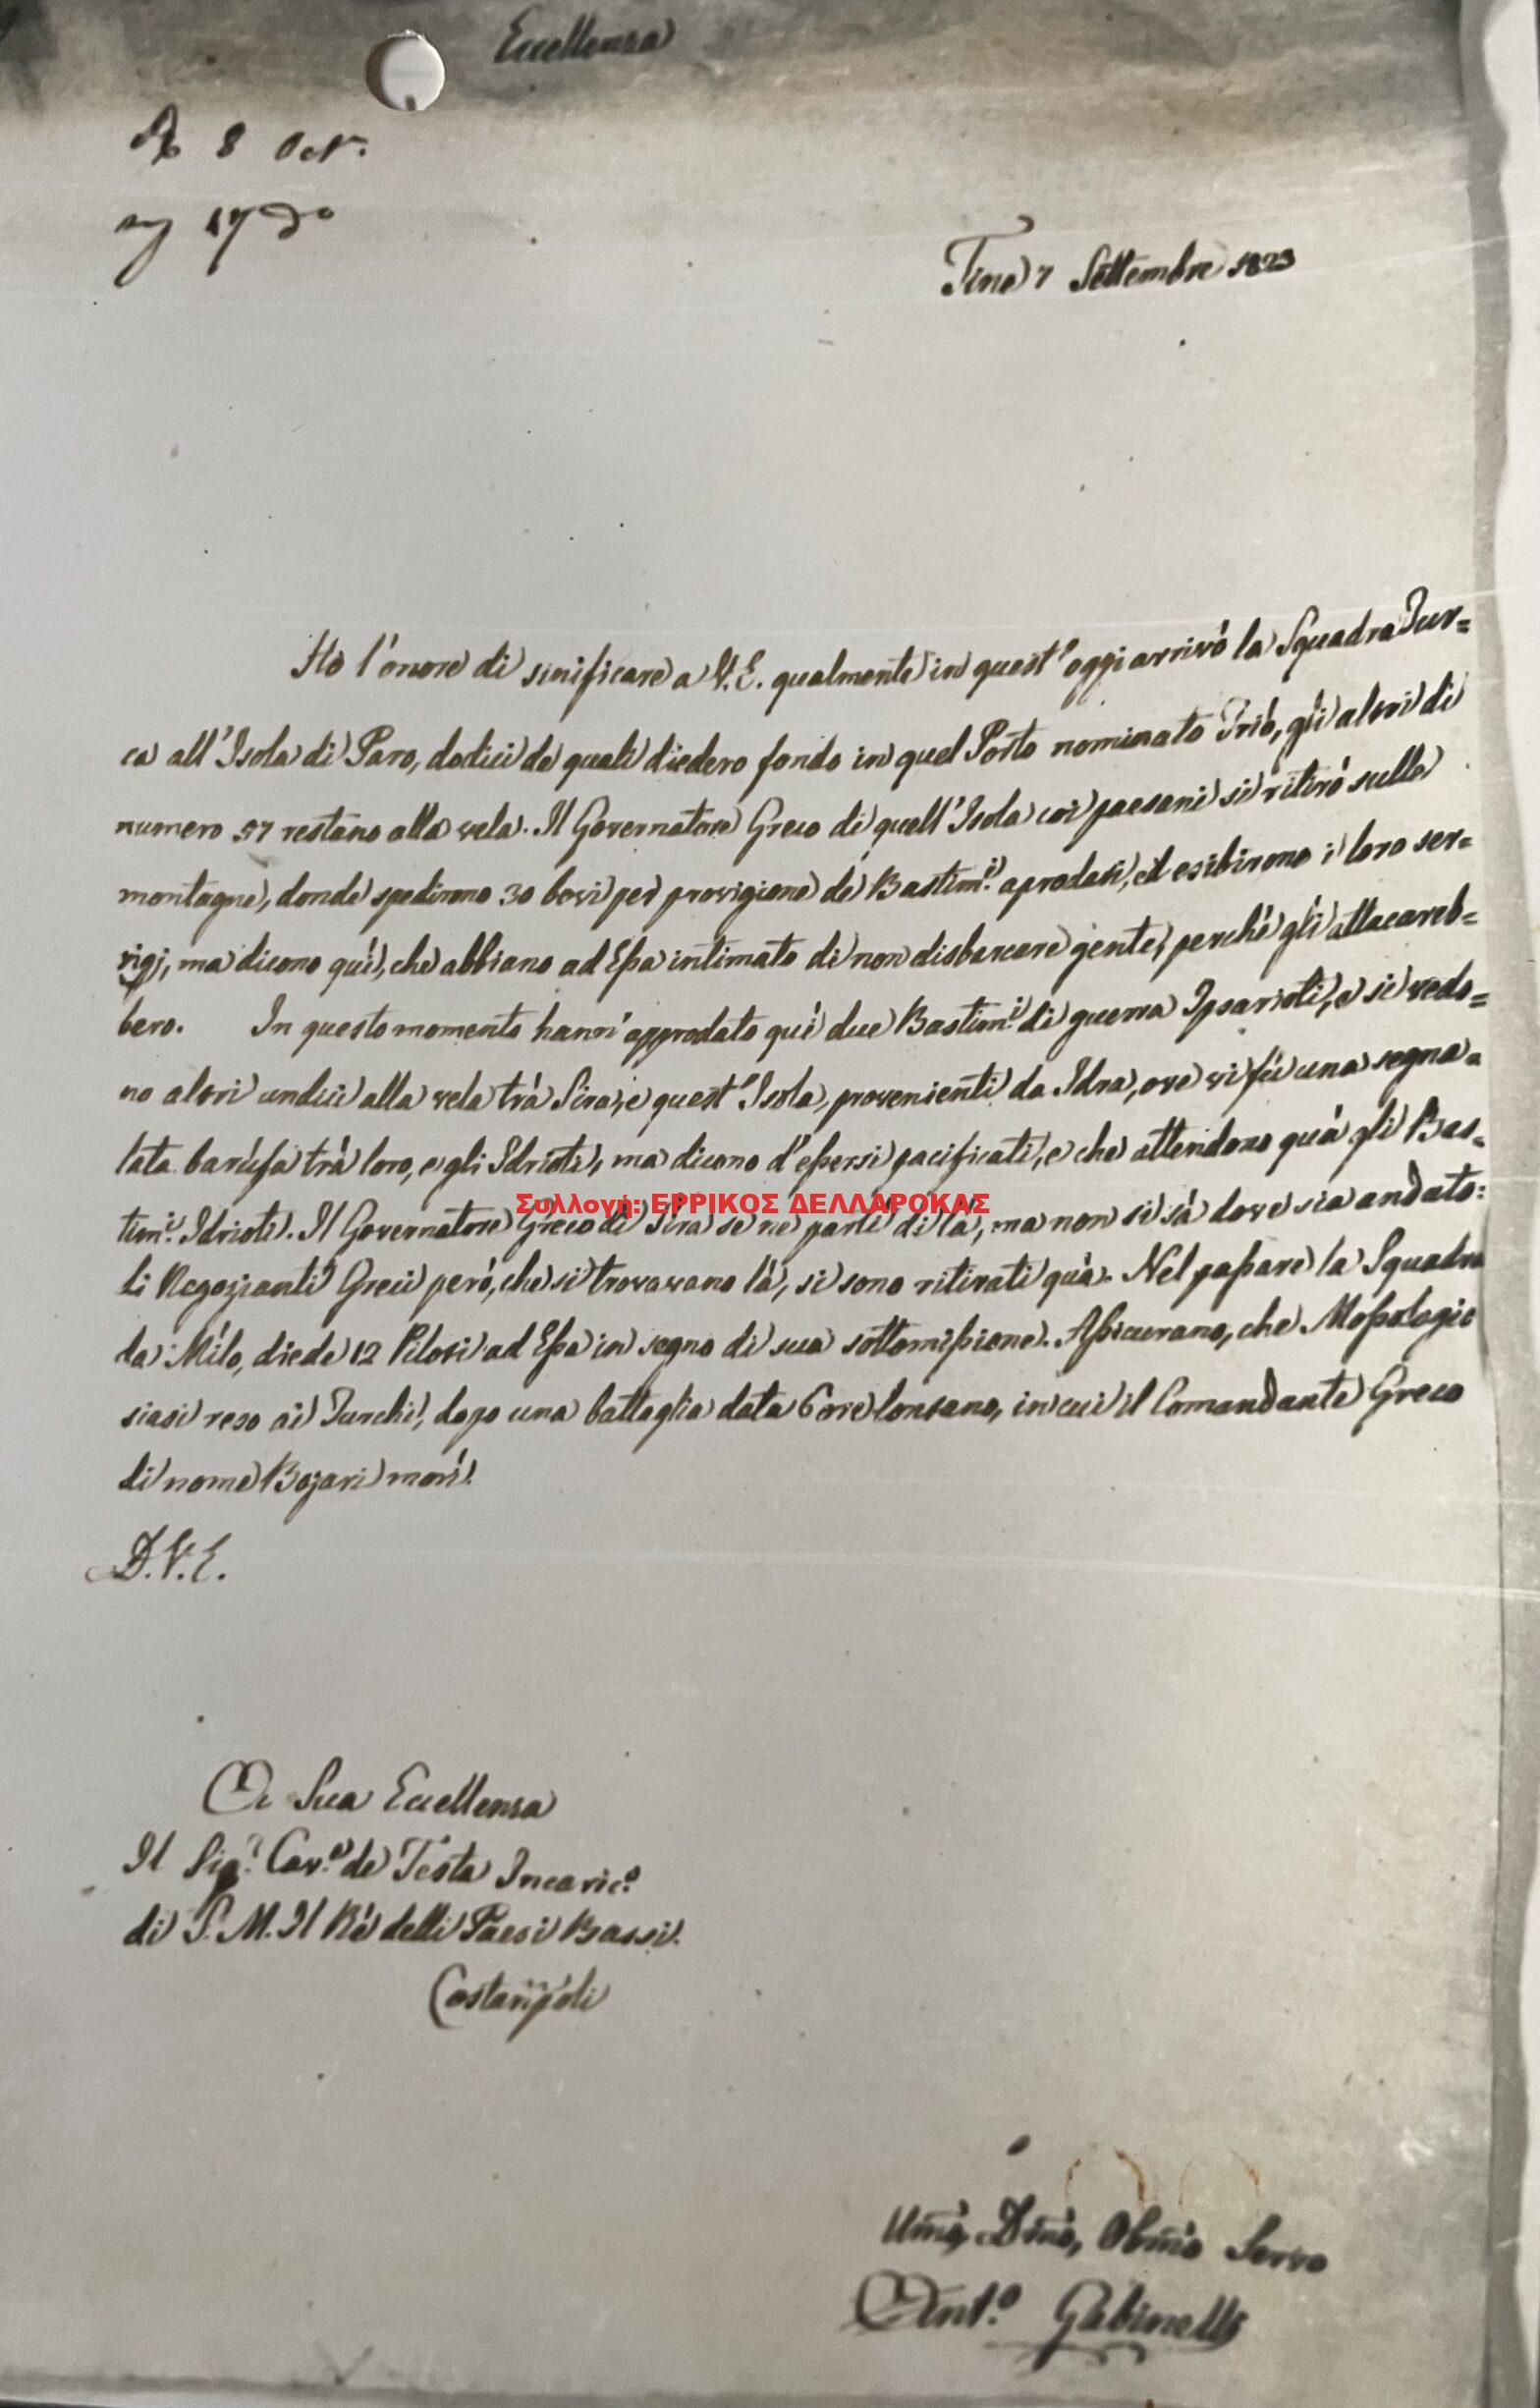 Eccellenza
R 8 Oct.
17 do
Tine 7 Settembre 1823
Hò l'onore di sinificare a V.E. qualmente in quest'oggi arrivò la Squadra Tur=
ca all'Isola di Paro, dodici de quali diedero fondo in quel Porto nominato Triò, gli altri di
numero 57 restano alla vela. Il Governatore Greco di quell'Isola coi paesani si ritirò sulle
montagne, donde spedirono 30 bovi per provigione de Bastim.i aprodati, ed esibirono i loro ser=
vigj, ma dicono quì, che abbiano ad Essa intimato di non disbarcare gente, perchè gli attacareb=
bero. In questo momento hann'approdato quì due Bastim.i di guerra Ipsarioti, e si vedo=
no altri undici alla vela trà Sira, e quest'Isola, provenienti da Idra, ove vi fù una segna=
lata barùfa trà loro, e gli Idrioti, ma dicono d'essersi pacificati, e che attendono quà gli Bas=
tim.i Idrioti. Il Governatore Greco di Sira se ne partì di là, ma non si sà dove sia andato:
Συλλογή: ΕΡΡΙΚΟΣ ΔΕΛΛΑΡΟΚΑΣ
li Negozianti Greci però, che si trovavano là, si sono ritirati quà. Nel passare la Squadra
da Milo, diede 12 Piloti ad Essa in segno di sua sottomissione. Assicurano, che Missologio
siasi reso ai Turchi, dopo una battaglia data 6 ore lontano, in cui il Comandante Greco
di nome Bozari morì.
D.V.E.
A Sua Eccellenza
Il Sig.r Cav.e de Testa Incaric.o
di S. M. Il Rè delli Paesi Bassi.
Costantipoli
Umo, Dmo, Obmo Servo
Ant.o Gabinelli